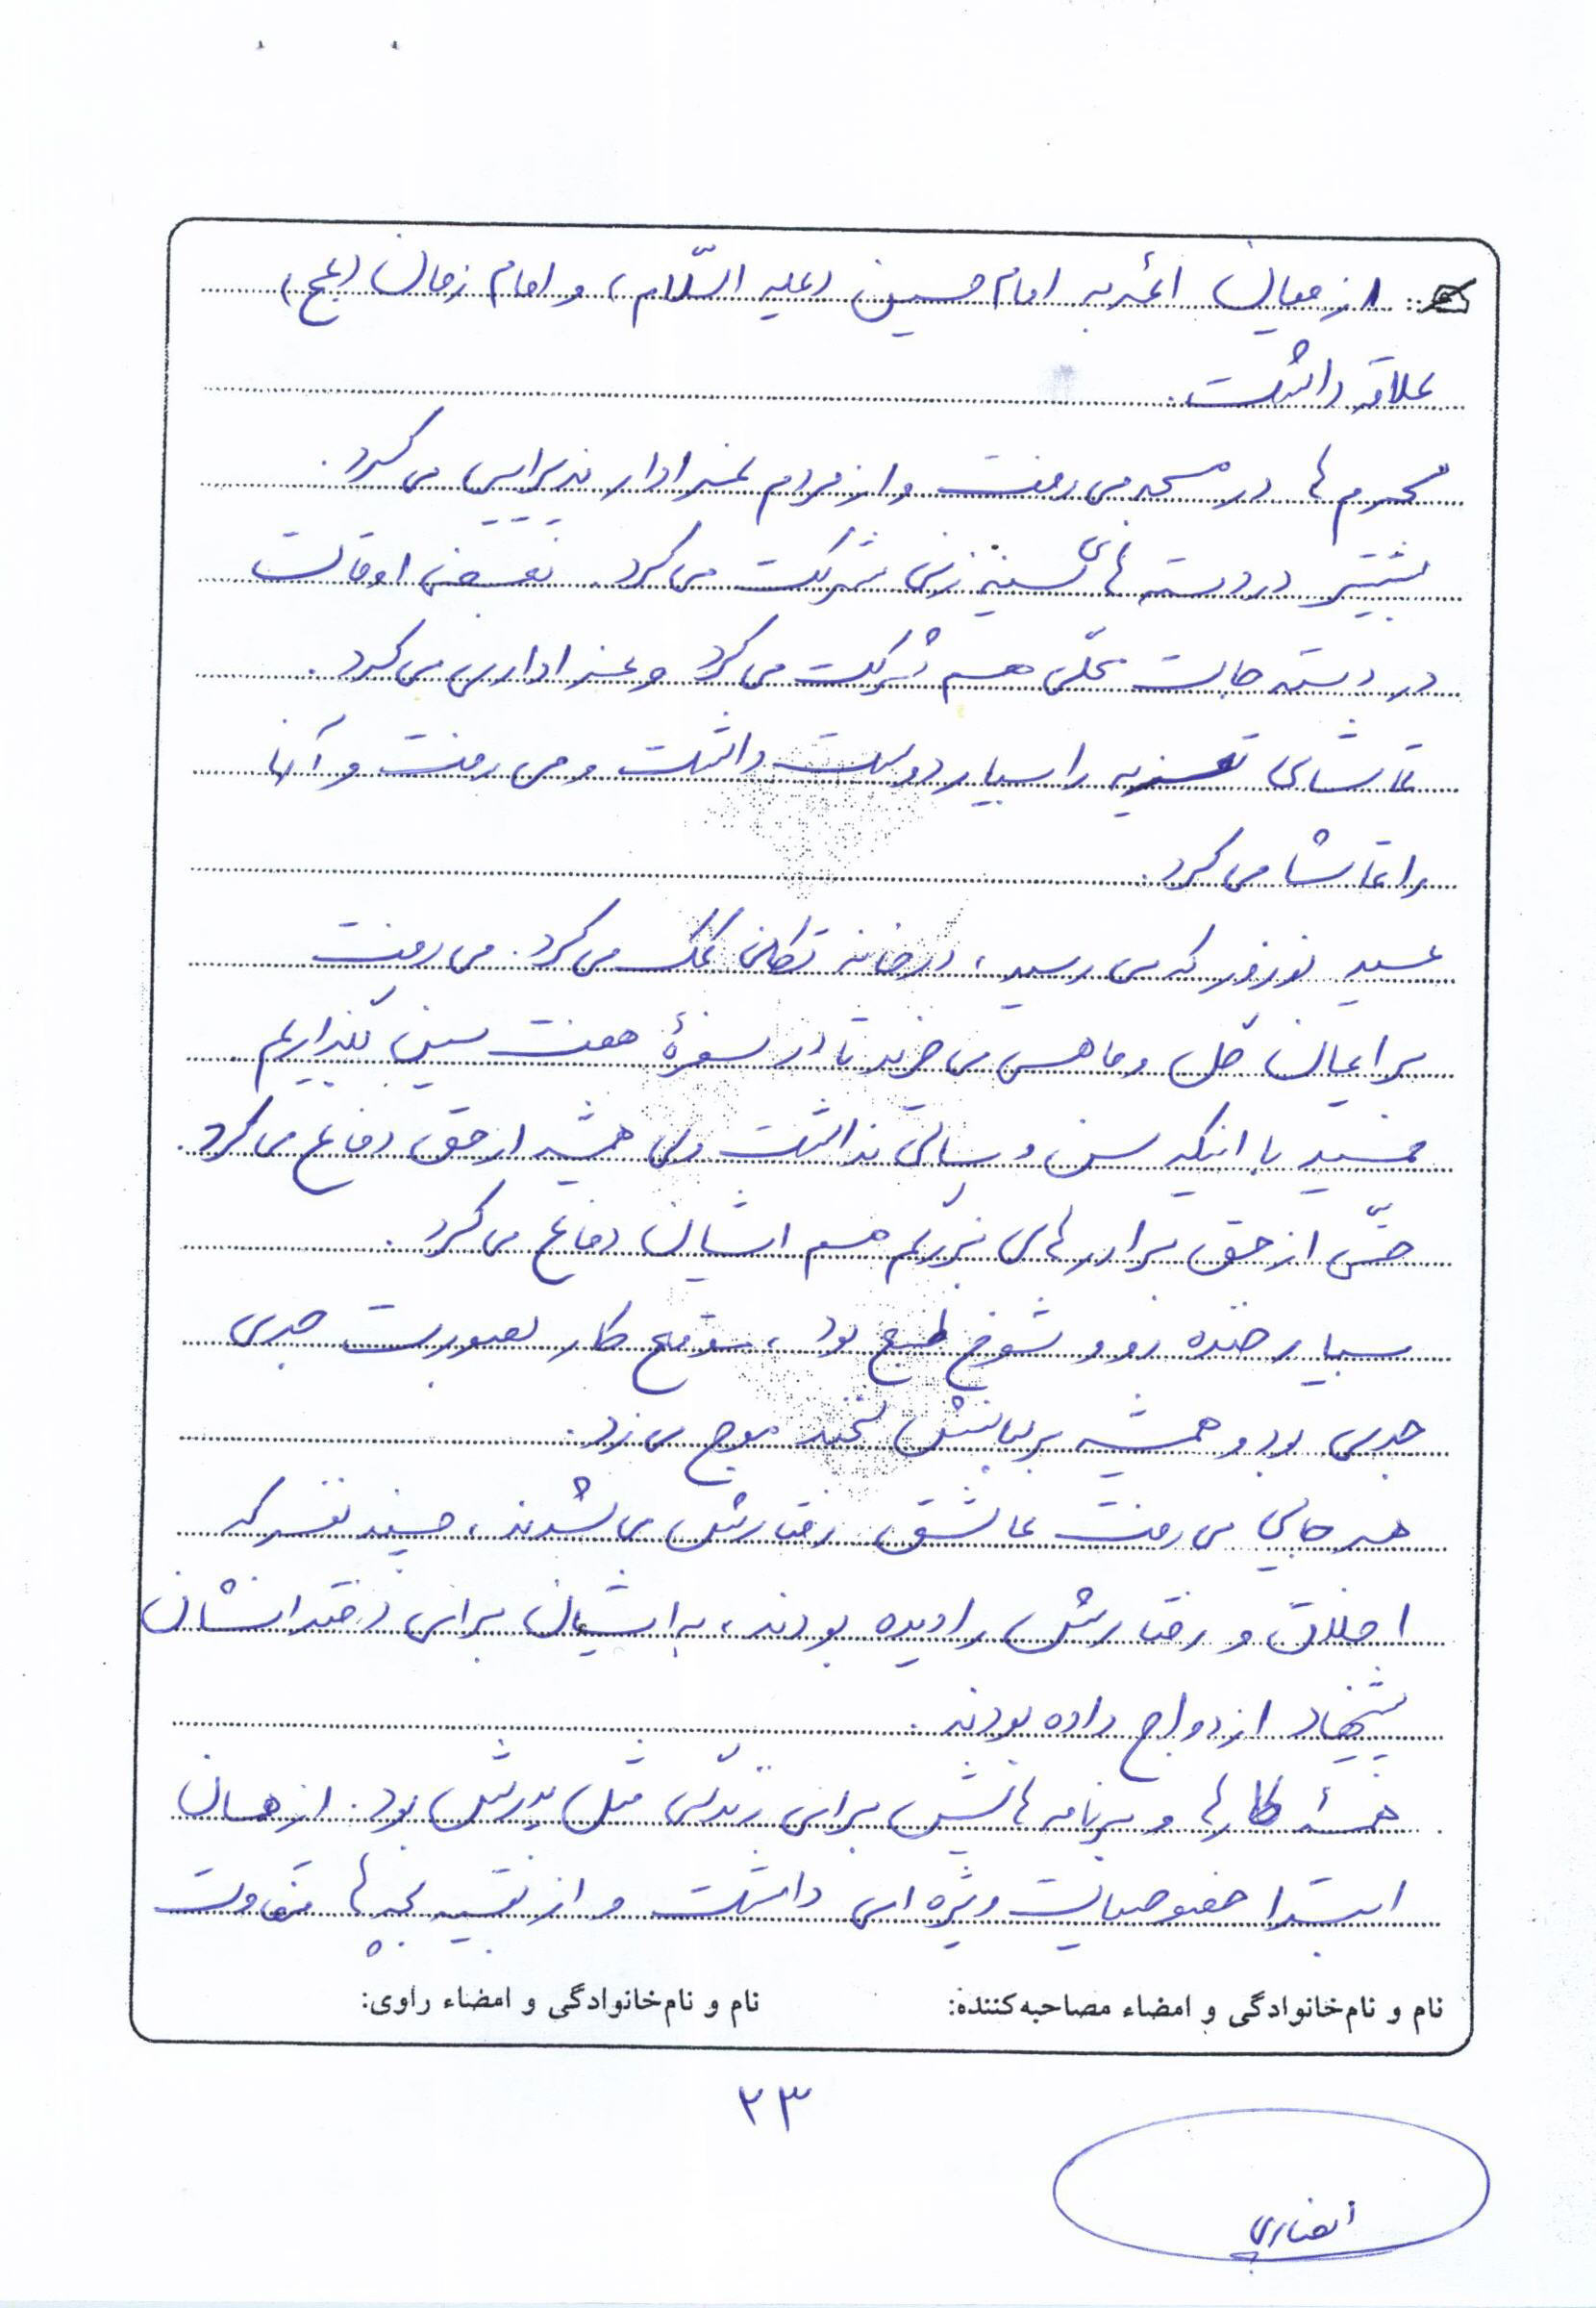 از میان ائمه به امام حسین (علیه السّلام) و امام زمان (عج)
علاقه داشت.
محرم ها در مسجد می رفت و از مردم عزادار پذیرایی می کرد.
بیشتر در دسته های سینه زنی شرکت می کرد. بعضی اوقات
در دسته جات محلّی هم شرکت می کرد و عزاداری می کرد.
تماشای تعزیه را بسیار دوست داشت و می رفت و آنها
را تماشا می کرد.
عید نوروز که می رسید، در خانه تکانی کمک می کرد. می رفت
برایمان گل و ماهی می خرید تا در سفرهٔ هفت سین بگذاریم
با اینکه سن و سالی نداشت ولی همیشه از حق دفاع می کرد.
حتّی از حق برادرهای بزرگم هم ایشان دفاع می کرد.
بسیار خنده رو و شوخ طبع بود، موقع کار بصورت جدی
جدی بود و همیشه بر لبانش لبخند موج می زد.
هر جایی می رفت عاشق رفتارش می شدند، چند نفر که
اخلاق و رفتارش را دیده بودند، به ایشان برای دخترانشان
پیشنهاد ازدواج داده بودند.
همهٔ کارها و برنامه هایش برای زندگی مثل پدرش بود. از همان
ابتدا خصوصیات ویژه ای داشت و از بقیه بچه ها متفاوت
نام و نام‌خانوادگی و امضاء مصاحبه‌کننده: نام و نام‌خانوادگی و امضاء راوی:
۲۳
انصاری